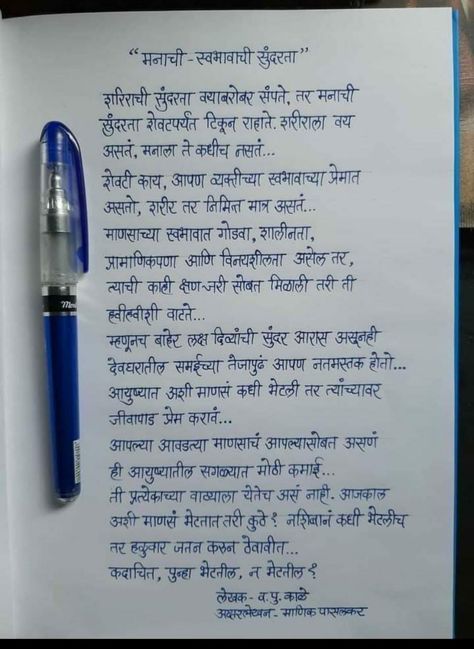 “मनाची - स्वभावाची सुंदरता”
शरिराची सुंदरता वयाबरोबर संपते, तर मनाची
सुंदरता शेवटपर्यंत टिकून राहाते. शरीराला वय
असतं, मनाला ते कधीच नसतं...
शेवटी काय, आपण व्यक्तीच्या स्वभावाच्या प्रेमात
असतो, शरीर तर निमित्त मात्र असतं...
माणसाच्या स्वभावात गोडवा, शालीनता,
प्रामाणिकपणा आणि विनयशीलता असेल तर,
त्याची काही क्षण-जरी सोबत मिळाली तरी ती
हवीहवीशी वाटते...
म्हणूनच बाहेर लक्ष दिव्यांची सुंदर आरास असूनही
देवघरातील समईच्या तेजापुढं आपण नतमस्तक होतो...
आयुष्यात अशी माणसं कधी भेटली तर त्यांच्यावर
जीवापाड प्रेम करावं...
आपल्या आवडत्या माणसाचं आपल्यासोबत असणं
ही आयुष्यातील सगळ्यात मोठी कमाई...
ती प्रत्येकाच्या वाट्याला येतेच असं नाही. आजकाल
अशी माणसं भेटतात तरी कुठे? नशिबानं कधी भेटलीच
तर हळुवार जतन करुन ठेवावीत...
कदाचित, पुन्हा भेटतील, न भेटतील?
लेखक - व. पु. काळे
अक्षरलेखन - माणिक पासलकर